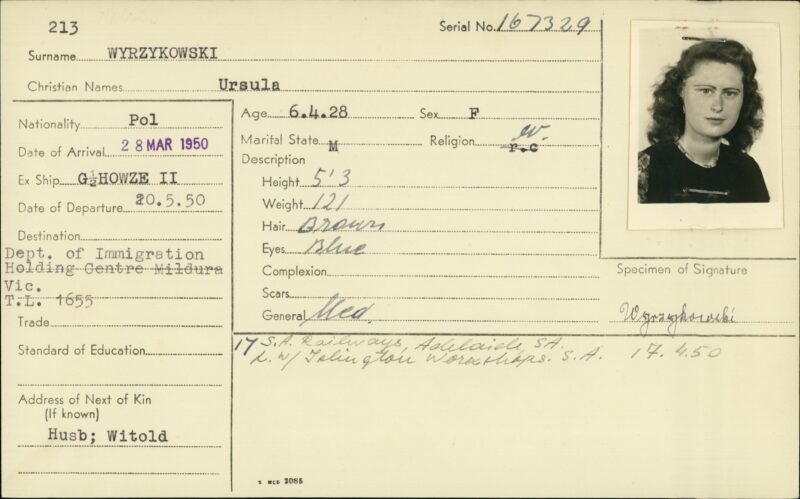 213
Serial No. 167329
Surname WYRZYKOWSKI
Christian Names Ursula
Nationality Pol
Date of Arrival 28 MAR 1950
Ex Ship G½HOWZE II
Date of Departure 20.5.50
Destination
Dept. of Immigration
Holding Centre Mildura
Vic.
T.L. 1655
Trade
Standard of Education
Address of Next of Kin
(If known)
Husb; Witold
Age 6.4.28 Sex F
Marital State M Religion r.c
Description
Height 5'3
Weight 121
Hair Brown
Eyes Blue
Complexion
Scars
General Med.
Specimen of Signature
Wyrzykowski
17 S.A. Railways, Adelaide, SA.
Islington Workshops. S.A. 17.4.50
S MCG 2085